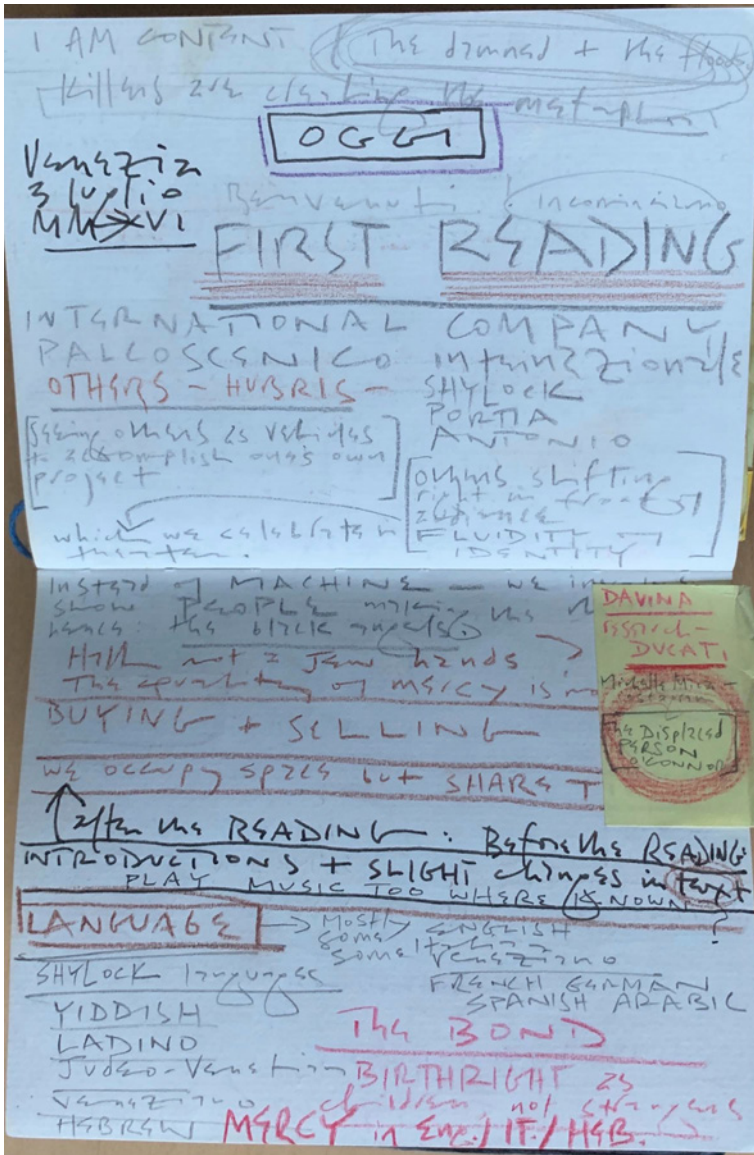 I AM CONTENT
The damned + the floods
Killers are creating the metaphor
OGGI
Venezia
3 luglio
MMXVI
Benvenuti incominciamo
FIRST READING
INTERNATIONAL COMPANY
PALCOSCENICO internazionale
OTHERS - HUBRIS -
SHYLOCK
PORTIA
ANTONIO
[seeing others as vehicles
to accomplish one's own
project]
[others shifting
right in front of
audience
FLUIDITY of
IDENTITY]
which we celebrate in
theater.
Instead of MACHINE - we
show PEOPLE making the
hence: the black angels.
Hath not a Jew hands
The quality of mercy is no
BUYING + SELLING
we occupy space but SHARE T
DAVINA
research -
DUCATI
Michelle
The Displaced
PERSON
O'CONNOR
after the READING: Before the READING
INTRODUCTIONS + SLIGHT changes in text
PLAY MUSIC TOO WHERE KNOWN?
LANGUAGE → Mostly ENGLISH
some Italian
some Veneziano
FRENCH GERMAN
SPANISH ARABIC
SHYLOCK languages
YIDDISH
LADINO
Judeo-Venetian
Veneziano
HEBREW
The BOND
BIRTHRIGHT as
children not strangers
MERCY in ENG./IT./HEB.